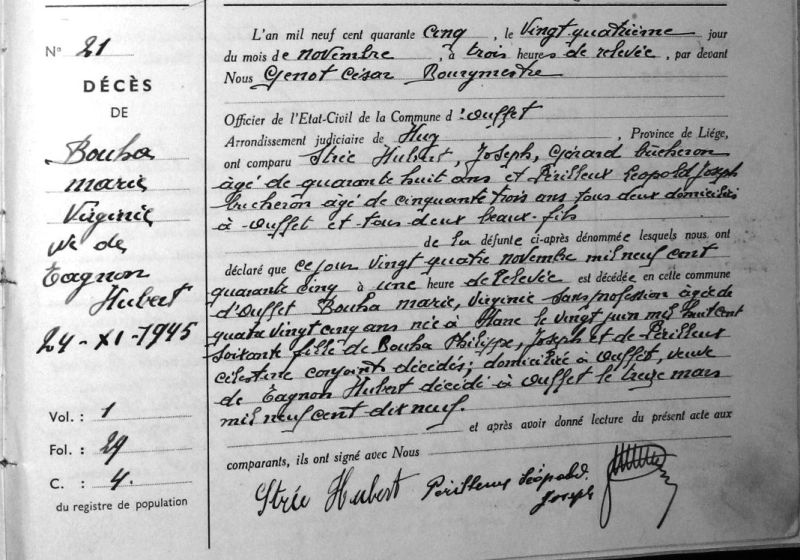 N° 21
DÉCÈS
DE
Bouha
marie
Virginie
ve de
Tagnon
Hubert
24-XI-1945
Vol. : 1
Fol. : 29
C. : 4.
du registre de population
L'an mil neuf cent quarante cinq, le Vingt quatrième jour
du mois de novembre, à trois heures de relevée, par devant
Nous Genot César Bourgmestre
Officier de l'Etat-Civil de la Commune d'Ouffet
Arrondissement judiciaire de Huy, Province de Liége,
ont comparu Strée Hubert, Joseph, Gérard bûcheron
âgé de quarante huit ans et Périlleux Léopold Joseph
bucheron âgé de cinquante trois ans tous deux domiciliés
à Ouffet et tous deux beaux-fils
de la défunte ci-après dénommée lesquels nous ont
déclaré que ce jour vingt quatre novembre mil neuf cent
quarante cinq à une heure de relevée est décédée en cette commune
d'Ouffet Bouha marie, Virginie sans profession âgée de
quatre vingt cinq ans née à le vingt juin mil huit cent
soixante fille de Bouha Philippe, Joseph et de Périlleux
célestine conjoints décédés; domiciliée à Ouffet, veuve
de Tagnon Hubert décédé à Ouffet le treize mars
mil neuf cent dix neuf.
et après avoir donné lecture du présent acte aux
comparants, ils ont signé avec Nous
Strée Hubert Périlleux Léopold.
Joseph